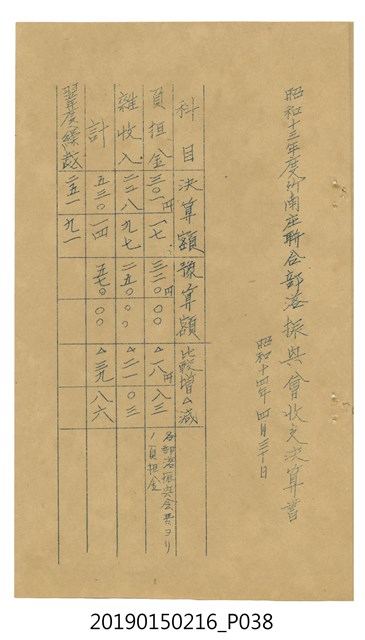 昭和十三年度竹南庄聯合部落振興會收支決算書
昭和十四年四月三十日
科目 決算額 豫算額 比較增△減
負担金 三〇一円一七 三二〇円〇〇 △一八円八三 各部落振興会費ヨリ
ノ負担金
雜收入 二二八九七 二五〇〇〇 △二一〇三
計 五三〇一四 五七〇〇〇 △三九八六
翌年度繰越 三五一九一
20190150216_P038